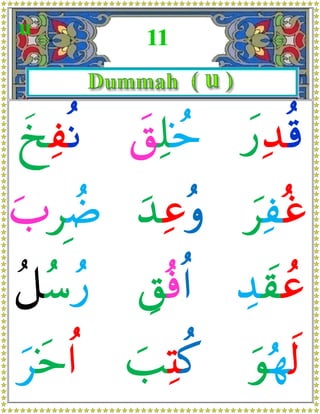 11
Dummah ( u )
قُدِرَ خُلِقَ نُفِخَ
غُفِرَ وُعِدَ ضُرِبَ
عُقَدِ اُفُقِ رُسُلُ
لَهُوَ كُتِبَ اُخَرَ